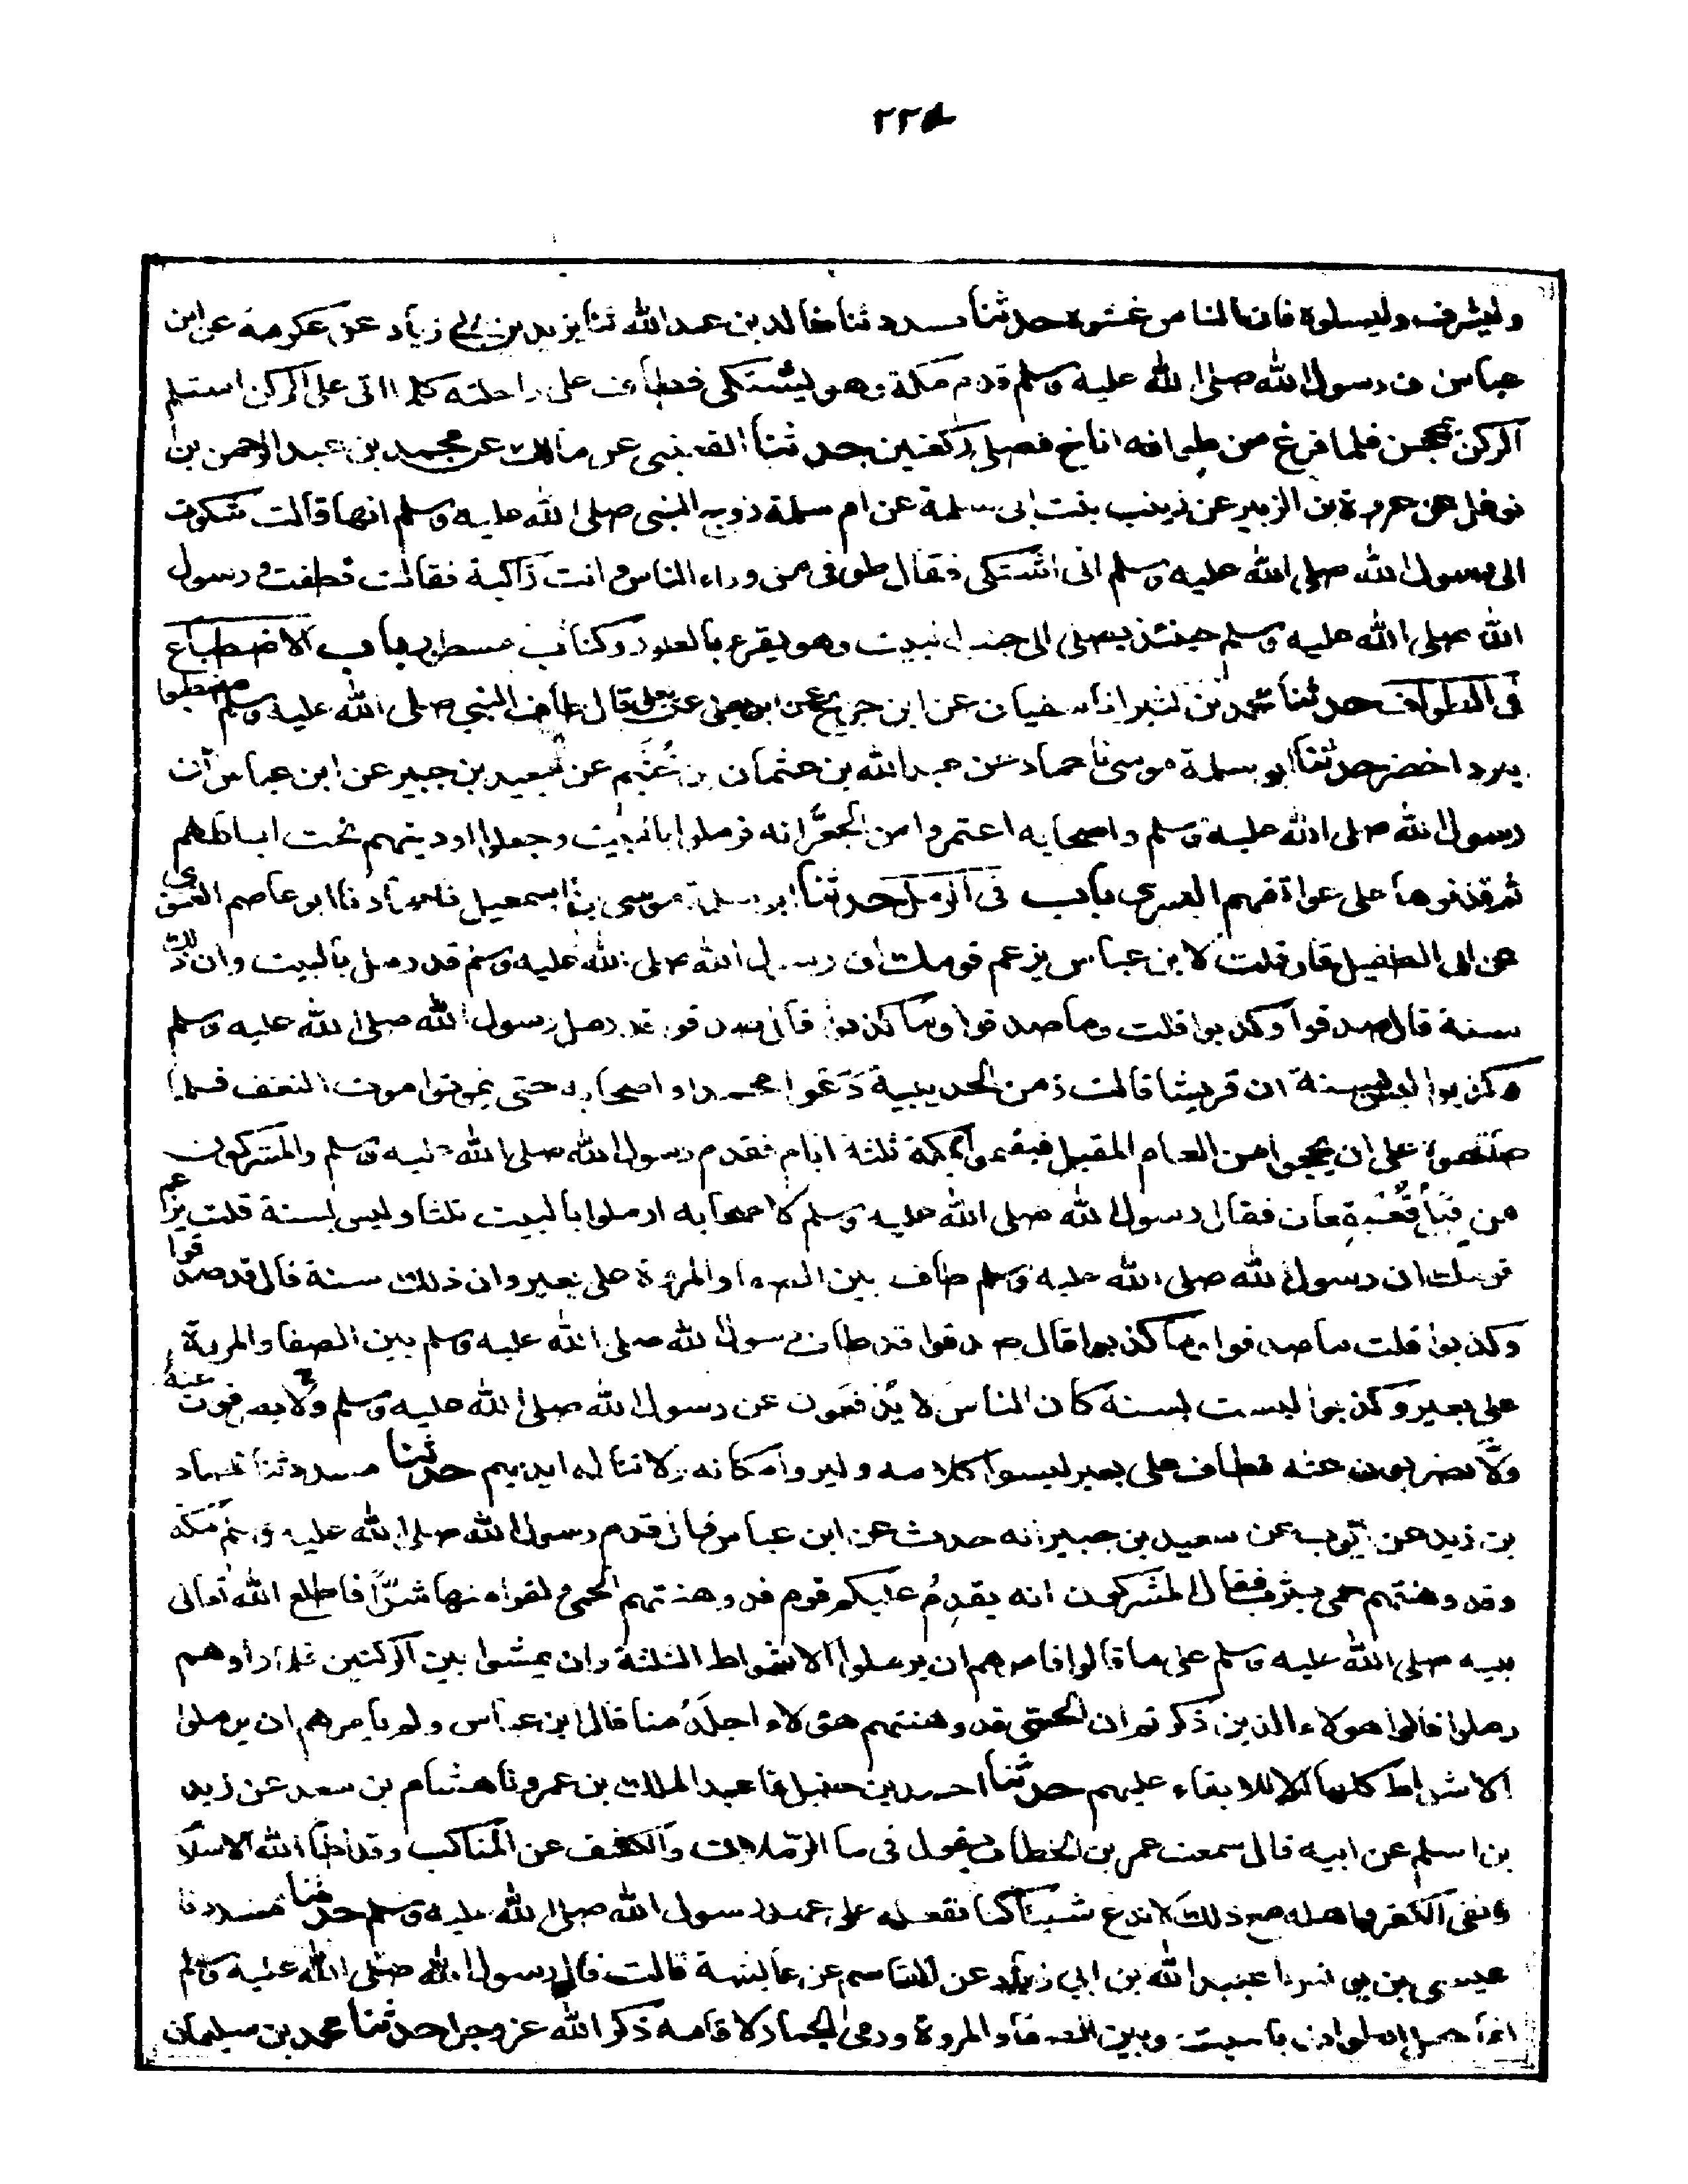 ٢٢٤
وليشرف وليسلوه فان الناس غشوه حدثنا مسدد ثنا خالد بن عبدالله ثنا يزيد بن ابي زياد عن عكرمة عن ابن
عباس ان رسول الله صلى الله عليه وسلم قدم مكة وهو يشتكى فطاف على راحلته كلما اتى على الركن استلم
الركن بمحجن فلما فرغ من طوافه اناخ فصلى ركعتين حدثنا القعنبى عن مالك عن محمد بن عبد الرحمن بن
نوفل عن عروة بن الزبير عن زينب بنت ابى سلمة عن ام سلمة زوج النبى صلى الله عليه وسلم انها قالت شكوت
الى رسول الله صلى الله عليه وسلم انى اشتكى فقال طوفى من وراء الناس وانت راكبة فقالت فطفت ورسول
الله صلى الله عليه وسلم حينئذ يصلى الى جنب البيت وهو يقرء بالطور وكتاب مسطور باب الاضطباع
فى الطواف حدثنا محمد بن كثير انا سفيان عن ابن جريج عن ابن يعلى عن يعلى قال طاف النبى صلى الله عليه وسلم مضطبعا
ببرد اخضر حدثنا ابو سلمة موسى نا حماد عن عبدالله بن عثمان بن خُثَيم عن سعيد بن جبير عن ابن عباس ان
رسول الله صلى الله عليه وسلم واصحابه اعتمروا من الجعرّانه فرملوا بالبيت وجعلوا اوديتهم تحت اباطهم
ثم قذفوها على عواتقهم اليسرى باب فى الرمل حدثنا ابو سلمة موسى بن اسمعيل نا حماد نا ابو عاصم الغنوى
عن ابى الطفيل قال قلت لابن عباس يزعم قومك ان رسول الله صلى الله عليه وسلم قد رمل بالبيت وان ذلك
سنة قال صدقوا وكذبوا قلت وما صدقوا وما كذبوا قال صدقوا قد رمل رسول الله صلى الله عليه وسلم
وكذبوا ليس بسنة ان قريشا قالت زمن الحديبية دَعُوا محمدا واصحابه حتى يموتوا موت النغف فلما
صالحوه على ان يجيئوا من العام المقبل فيقيموا بمكة ثلثة ايام فقدم رسول الله صلى الله عليه وسلم والمشركون
من قبل قُعَيقِعان فقال رسول الله صلى الله عليه وسلم لاصحابه ارملوا بالبيت ثلثا وليس بسنة قلت يزعم
قومك ان رسول الله صلى الله عليه وسلم طاف بين الصفا والمروة على بعير وان ذلك سنة قال قد صدقوا
وكذبوا قلت ما صدقوا وما كذبوا قال صدقوا قد طاف رسول الله صلى الله عليه وسلم بين الصفا والمروة
على بعير وكذبوا ليست بسنة كان الناس لا يُدفَعون عن رسول الله صلى الله عليه وسلم ولا يصرفون عنه
ولا يضربون عنه فطاف على بعير ليسمعوا كلامه وليروا مكانه ولا تناله ايديهم حدثنا مسدد ثنا حماد
بن زيد عن ايوب عن سعيد بن جبير انه حدث عن ابن عباس قال قدم رسول الله صلى الله عليه وسلم مكة
وقد وهنتهم حمى يثرب فقال المشركون انه يقدم عليكم قوم قد وهنتهم الحمى ولقوا منها شرًّا فاطلع الله تعالى
نبيه صلى الله عليه وسلم على ما قالوا فامرهم ان يرملوا الاشواط الثلثة وان يمشوا بين الركنين فلما راوهم
رملوا قالوا هولاء الذين ذكرتم ان الحمى قد وهنتهم هؤلاء اجلَدُ منا قال ابن عباس ولم يامرهم ان يرملوا
الاشواط كلها الا للابقاء عليهم حدثنا احمد بن حنبل نا عبد الملك بن عمرو نا هشام بن سعد عن زيد
بن اسلم عن ابيه قال سمعت عمر بن الخطاب يقول فى ما الرّملان والكشف عن المناكب وقد اطأ الله الاسلا
ونفى الكفر واهله مع ذلك لا ندع شيئا كنا نفعله على عهد رسول الله صلى الله عليه وسلم حدثنا مسدد نا
عيسى بن يونس نا عبيد الله بن ابي زياد عن القاسم عن عايشة قالت قال رسول الله صلى الله عليه وسلم
انما جعل الطواف بالبيت وبين الصفا والمروة ورمى الجمار لاقامة ذكر الله عز وجل حدثنا محمد بن سليمان